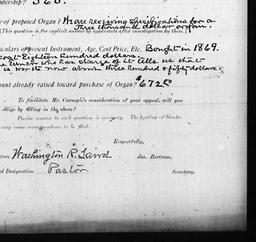 368.
of proposed Organ? We are receiving specifications for a
Three thousand dollar organ.
[This question is for explicit answer by applicants after investigation by them.]
culars of present Instrument, Age, Cost Price, Etc. Bought in 1869.
cost Eighteen hundred dollars
tuner who has charge of it tells us that
is worth now about three hundred & fifty dollars.
unt already raised toward purchase of Organ? $672
To facilitate Mr. Carnegie's consideration of your appeal, will you
oblige by filling in the above?
Precise answer to each question is necessary. The leaving of blanks
may cause correspondence to be filed.
Respectfully,
ature Washington R. Laird Jas. Bertram,
l Designation Pastor Secretary.